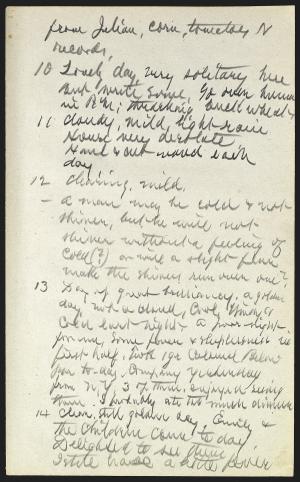 from Julian, corn, tomatoes N
records,
10 Lovely day, very solitary here
but write some, Go over hume
in P.M; threshing buck wheat
11 cloudy, mild, light rain
House very desolate
Haul & cut wood each
day
12 clearing, mild.
- a man may be cold & not
shiver, but he will not
shiver without a feeling of
cold(?) or will a slight fever
make the shivers run over one?
13 Day of great brilliancy, a golden
day, not a cloud, Cool, Windy &
Cold last night - a poor night
for me, some fever & sleeplessness
first half.
for to-day. Company yesterday
from N.Y. 3 of them, enjoyed seeing
them. I probably ate too much dinner
14 Clear, still golden day, Emily &
the children come to day
Delighted to see them
I still have a little fever